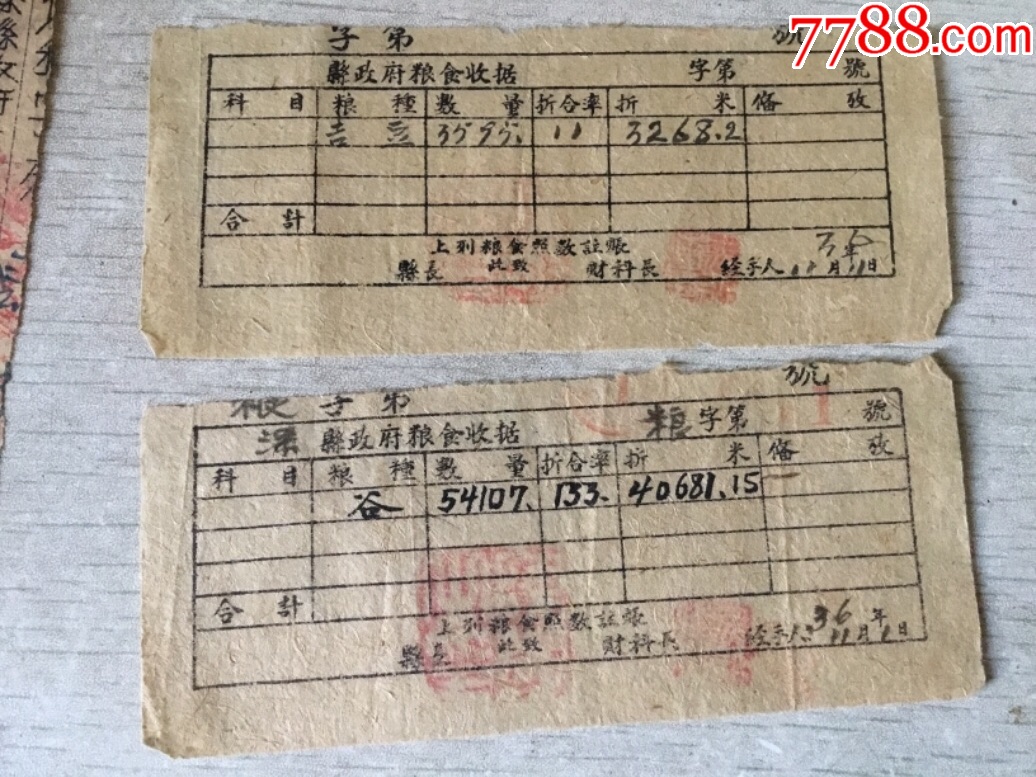 7788.com
字第 號
縣政府粮食收据 字第 號
科目 粮種 数量 折合率 折米 俻攷
吉豆 3595. 11 3268.2
合計
上列粮食照数註賬
此致
縣長 財科長 経手人 36年11月11日
粮字第 號
深縣政府粮食收据 粮字第 號
科目 粮種 数量 折合率 折米 俻攷
谷 54107. 133. 40681.15
合計
上列粮食照数註賬
此致
縣長 財科長 経手人 36年11月1日